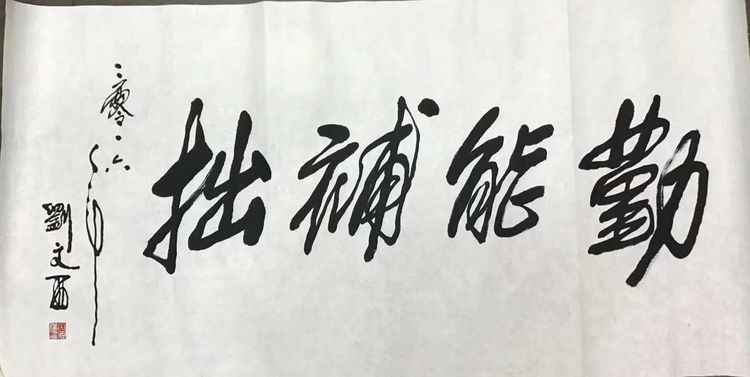 勤能補拙
二零一六年
劉文西